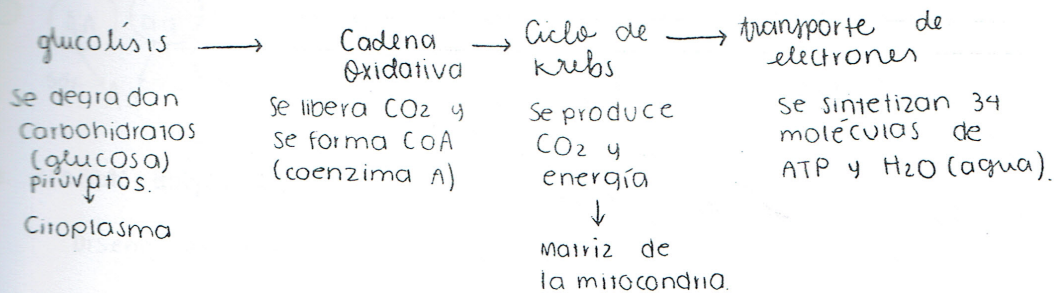 glucolísis → Cadena Oxidativa → Ciclo de Krebs → transporte de electrones
Se degradan
Carbohidratos
(glucosa)
piruvatos.
↓
Citoplasma
Se libera CO2 y
se forma COA
(coenzima A)
Se produce
CO2 y
energía
↓
Matriz de
la mitocondria.
Se sintetizan 34
moléculas de
ATP y H2O (agua).